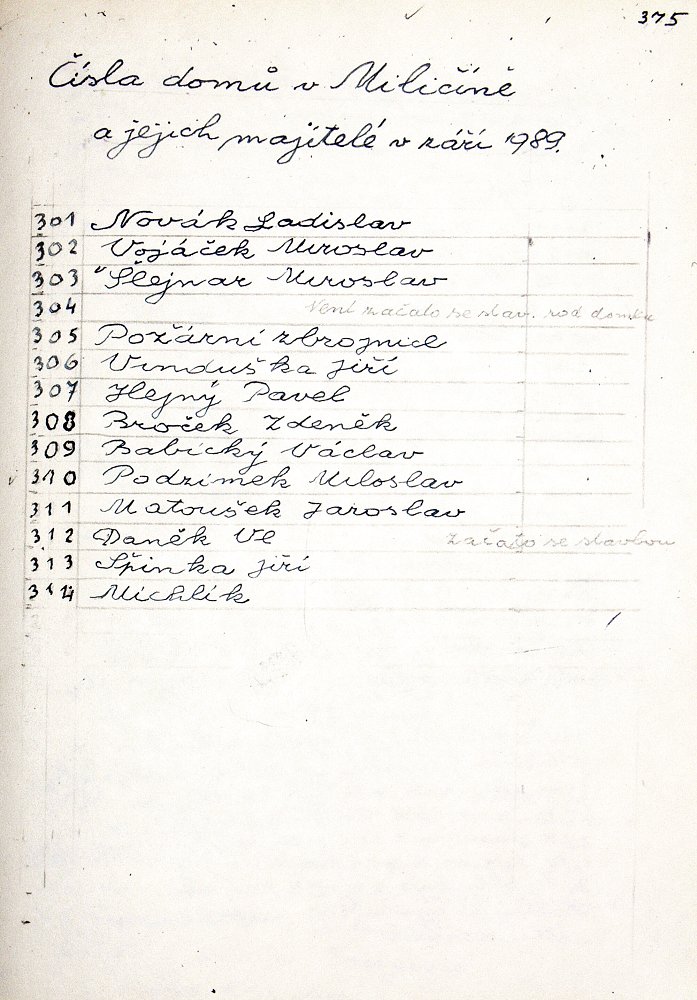 375
Čísla domů v Miličíně
a jejich majitelé v září 1989.
301 Novák Ladislav
302 Vojáček Miroslav
303 Šlejnar Miroslav
304 Není začalo se stav. rod domku
305 Požární zbrojnice
306 Vinduška Jiří
307 Hejný Pavel
308 Broček Zdeněk
309 Babický Václav
310 Podzimek Miloslav
311 Matoušek Jaroslav
312 Daněk Ve začato se stavbou
313 Špinka Jiří
314 Michlík